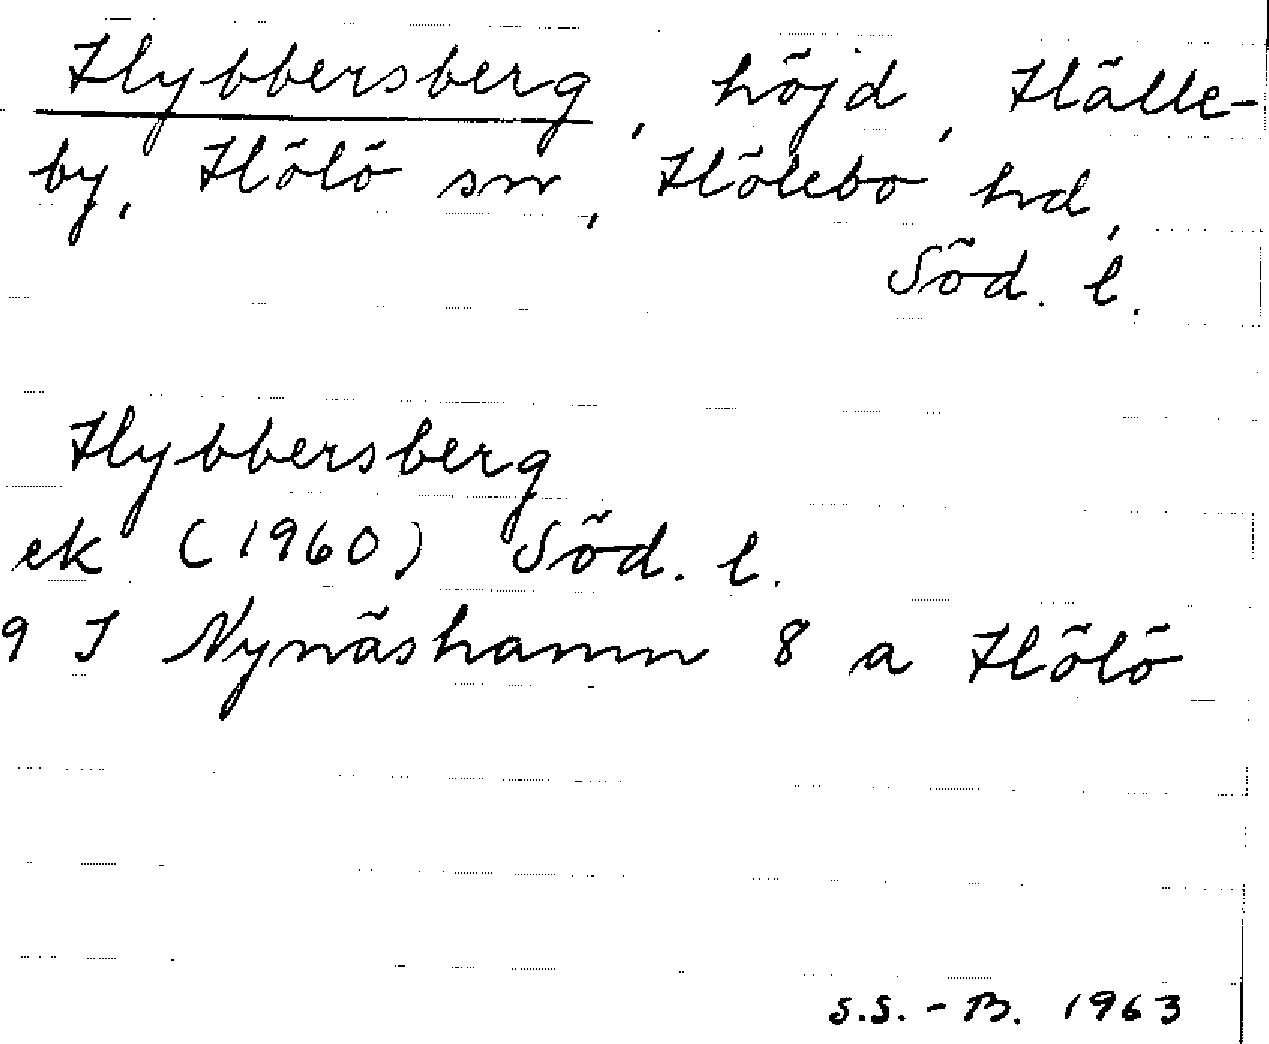 Hybbersberg, höjd, Hälle-
by, Hölö sn, Hölebo hd,
Söd. l.
Hybbersberg
ek (1960) Söd. l.
9 I Nynäshamn 8 a Hölö
S.S.-B. 1963